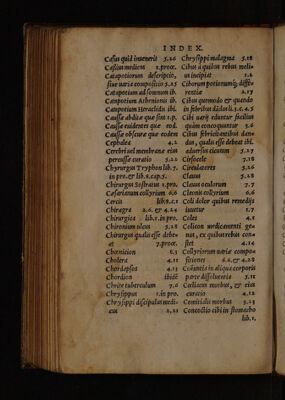 INDEX.
Casus quid inuenerit 5.26
Cassius medicus 1.proœ.
Catapotiorum descriptio,
siue variæ compositio 5.25
Catapotium ad somnum ib.
Catapotium Athenionis ib.
Catapotium Heraclidis ibi.
Caussæ abditæ quæ sint 1.p.
Caussæ euidentes quæ eod.
Caussæ obscuræ quæ eodem
Cephalea 4.2
Cerebri uel membranæ eius
percussæ curatio 5.22
Chyrurgus Tryphon lib.7.
in pro.& lib.6.cap.5.
Chirurgus Sostratus 1.pro.
Cæsarianum collyrium 6.6
Cercis lib.8.c.1
Chiragra 2.6.& 4.24
Chirurgica lib.1.in pro.
Chironium ulcus 5.28
Chirurgus qualis esse debe-
at 7.proœ.
Chœnicion 8.3
Cholera 4.11
Chordapsos 4.13
Chordion ibidē
Christe tuberculum 7.6
Chrysippus 1.in pro.
Chrysippi discipulus medi-
cus 2.21
Chrysippi malagma 5.18
Cibus à quibus rebus meli-
us incipiat 1.2
Ciborum potionumq́; diffe-
rentia 2.17
Cibus quomodo & quando
in febribus dādus li.3.c.4.5
Cibi uarij edantur facilius
quàm concoquuntur 3.6
Cibus febricitantibus dan-
dus, qualis esse debeat ibi.
aduersus clauum 5.27
Cirsocele 7.18
Circulatores 5.26
Clauus 5.28
Clauus ocularum 7.7
Cleonis collyrium 6.6
Coli dolor quibus remedijs
iuuetur 1.7
Coles 4.1
Colicon medicamenti ge-
nus, ex quibus rebus con-
stet 4.14
Collyriorum uariæ compo-
sitiones 6.6.& 4.28
Columtis in aliqua corporis
parte dissolueria 5.11
Cœliacus morbus, & eius
curatio 4.12
Comitialis morbus 3.23
Concoctio cibi in stomacho
lib.1.